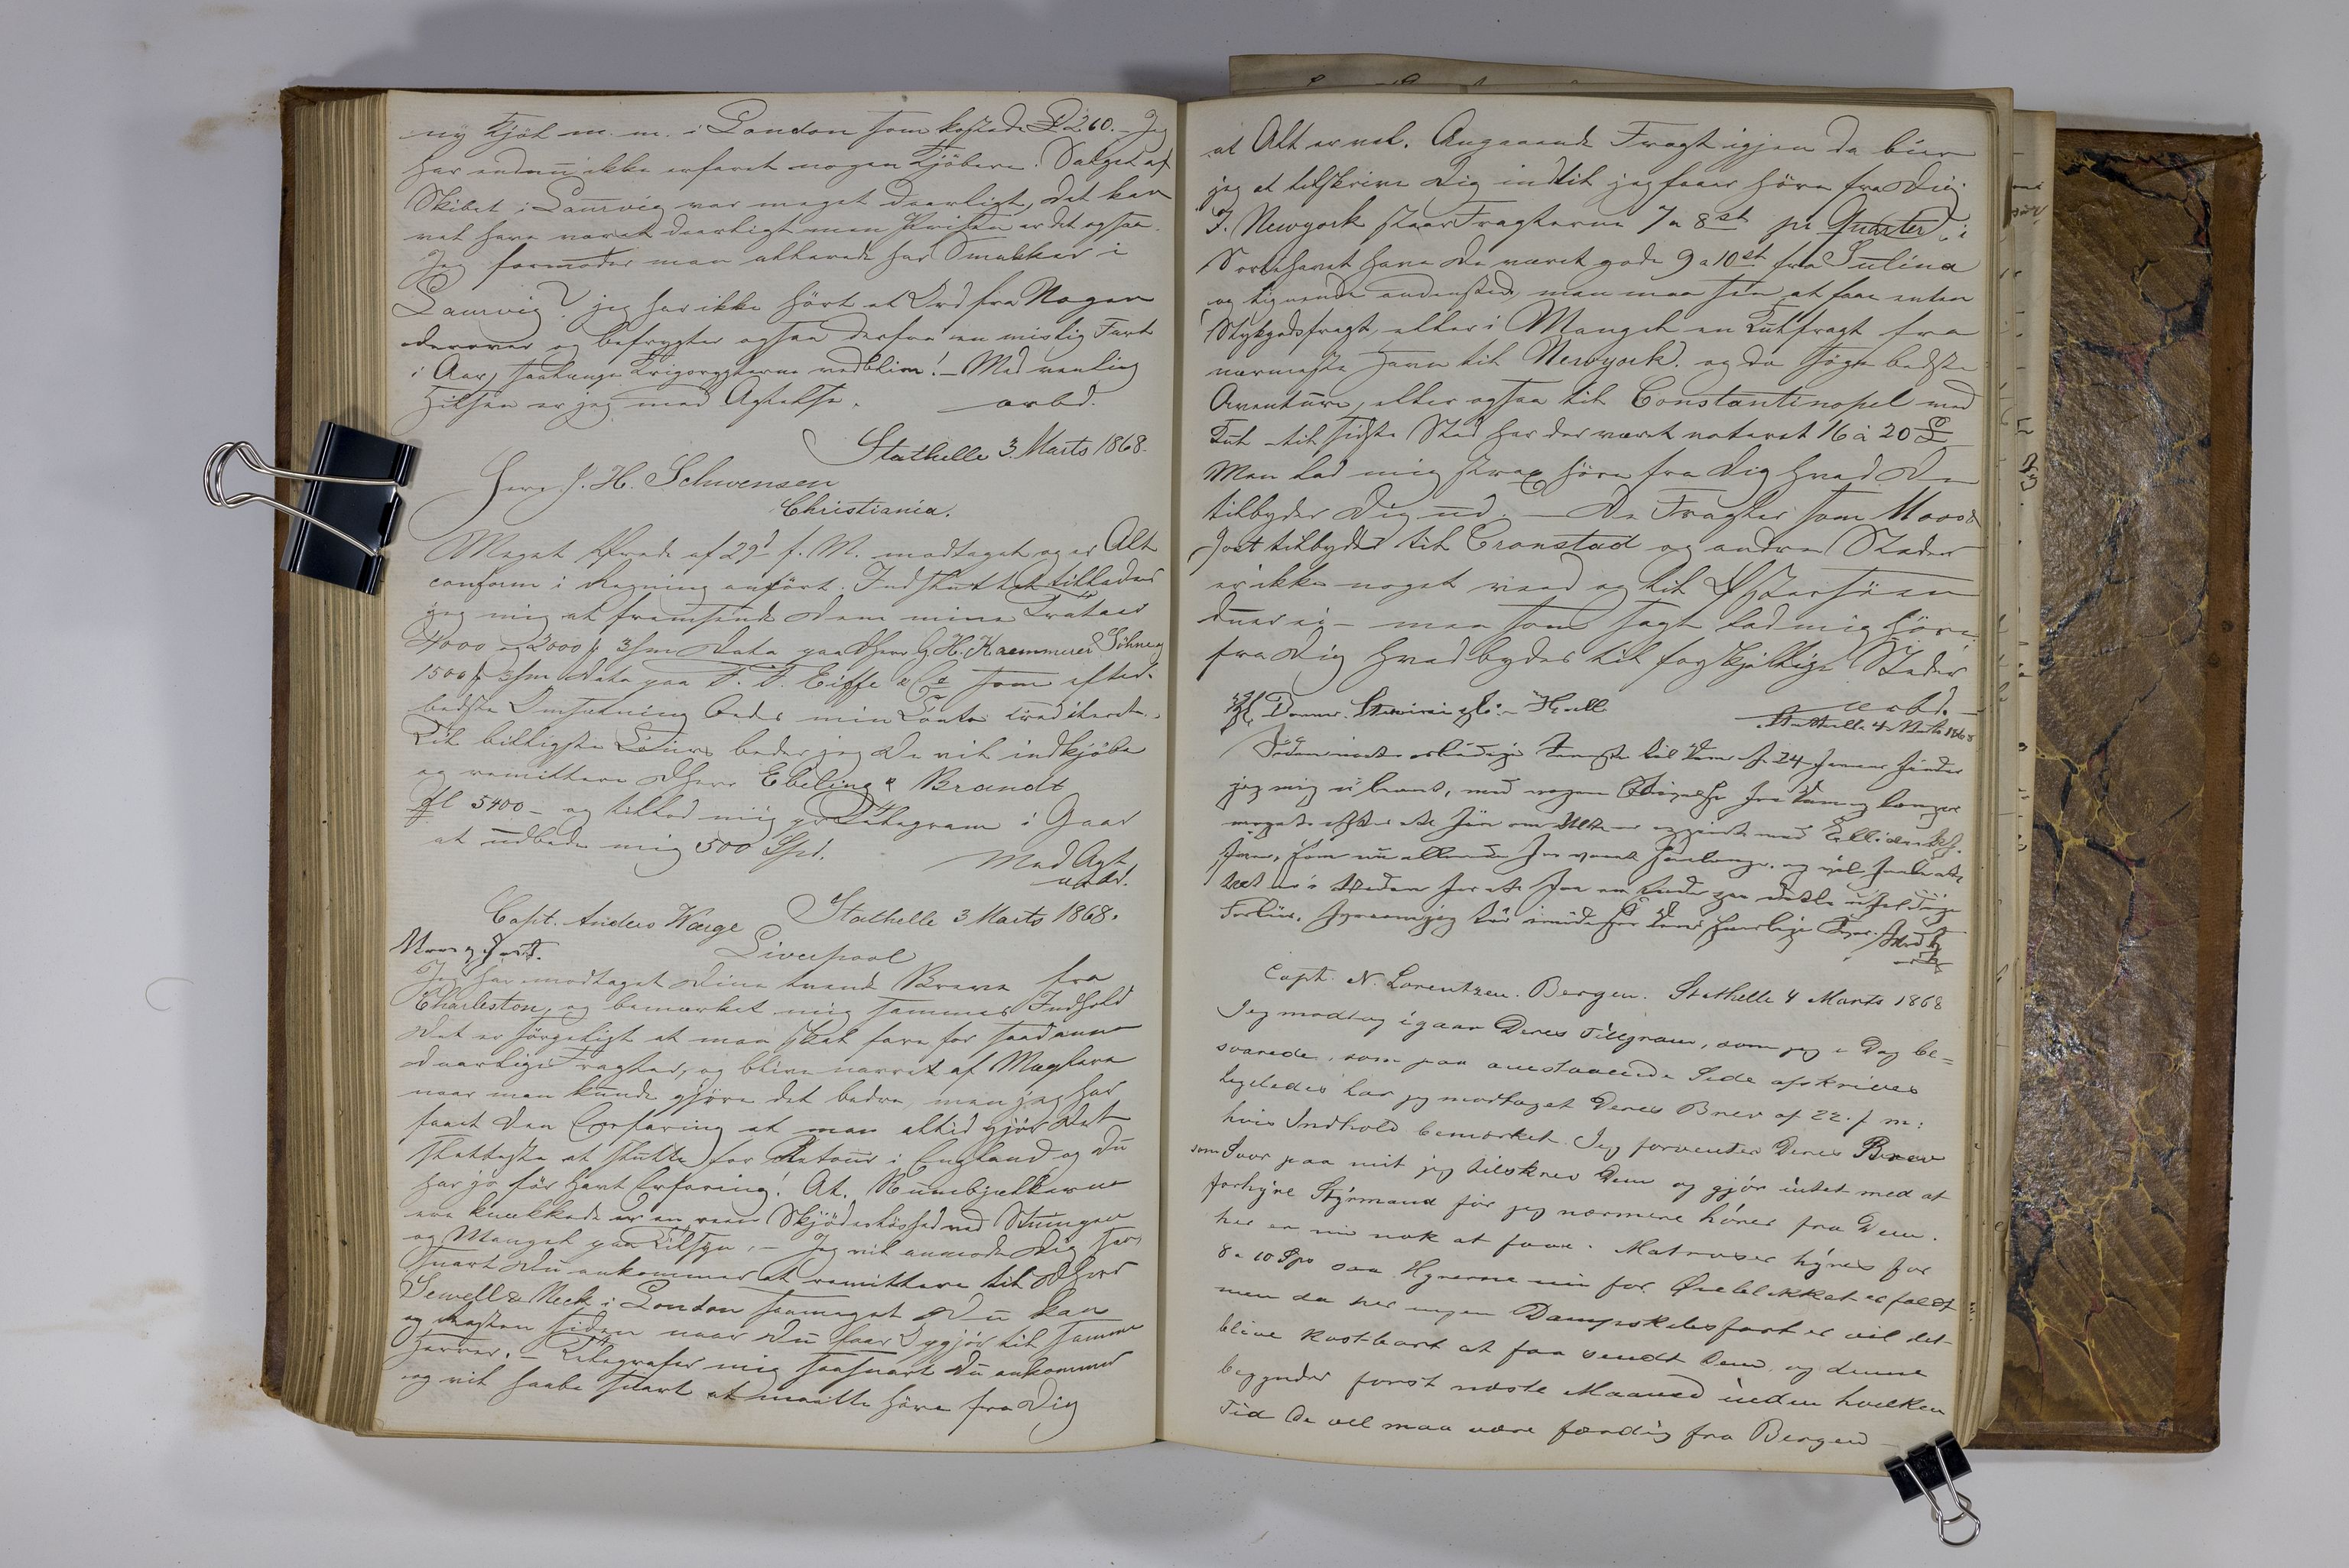 ny Kjöl m. m. i London som kostede £ 260.– Jeg
har endnu ikke erfaret nogen Kjöbere. Salget af
Skibet i Laurvig var meget daarligt, det kan
vel have været daarligt men Prisen er det ogsaa.
Jeg formoder man allerede har Smukker i
Laurvig? jeg har ikke hört et Ord fra Nogen
derover og befrygter ogsaa derfra en mislig Fart
i Aar, saalænge Krigsrygterne vedblive! – Med venlig
Hilsen er jeg med Agtelse. arbd.
Stathelle 3. Marts 1868.
Herr J. H. Schwensen
Christiania.
Meget Ærede af 29d f. M. modtaget og er Alt
conform i Regning anfört. Indsluttet tillader
jeg mig at fremsende Dem mine Tratter
4000 og 2000 p 3/m Data paa Dherr G. H. Kaemmerer Söhne og
1500 p 3/m Data paa F. F. Eiffe & Co som efter
bedste Omsætning bedes min Conto krediteret.
Til billigste Cours beder jeg De vil indkjöbe
og remittere Dherr Ebeling & Brandt
fl 5400 – og tillod mig pr Telegram i Gaar
at udbede mig 500 Spd.
Med Agt
arbd.
Capt. Anders Wærge Stathelle 3 Marts 1868.
Moos & Jost. Liverpool
Jeg har modtaget Dine tvende Breve fra
Charleston, og bemærket mig sammes Indhold
Det er sörgeligt at man skal fare for saadanne
daarlige Fragter, og blive narret af Mæglere
naar man kunde gjöre det bedre, men jeg har
faaet den Erfaring at man altid gjör det
sletteste at slutte for Retour i England og Du
har jo för havt Erfaring! At. Rumbjælkerne
ere knækkede er en reen Skjödeslöshed ved Stuingen
og Mangel paa Tilsyn. – Jeg vil anmode Dig saa
snart Du ankommer at remittere til Dherr
Sewell & Neck i London saameget Du kan
og Resten siden naar Du faar Opgjör til samme
Herrer. – Telegrafer mig saasnart Du ankommer
og vil haabe snart at maatte höre fra Dig
at Alt er vel. Angaaende Fragt igjen da bier
jeg at tilskrive Dig indtil jeg faaer höre fra Dig.
I. Newyork staar Fragterne 7 a 8 st pr Quarter, i
Sortehavet have de været gode 9 a 10 st fra Sulina
og lignende andensteds, man maa see at faae enten
Stykgodsfragt, eller i Mangel en Kulfragt fra
nærmeste Havn til Newyork. og da söge bedste
Aventüre, eller ogsaa til Constantinopel med
Kul – til sidste Sted har der været noteret 16 à 20 £
Men lad mig strax höre fra Dig hvad De
tilbyder Dig ud. – De Fragter som Moos &
Jost tilbydes til Cronstad og andre Steder
er ikke noget værd og til Östersöen
duer ei – men som sagt lad mig höre
fra Dig hvad bydes til forskjellige Steder
arbd. –
Stathelle 4 Marts 1868
Siden mit til Dem af 24 Januar finder
jeg mig med fra Dem og
om Alt er med
Capt. N. Lorentzen. Bergen. Stathelle 4 Marts 1868
Jeg modtog igaar Deres Tillgram, som jeg i Dag be=
svarede, som paa anestaaende Side afskrives
ligeledes har jeg modtaget Deres Brev af 22. f m:
hvis Indhold bemærket. Jeg forventer Deres Brev
som Svar paa mit jeg tilskrev Dem og gjör intet med at
forhyre Styrmand för jeg nærmere hörer fra Dem.
her er nu nok at faae. Matroser hyres for
8 a 10 Spd saa Hyrerne nu for Öieblikket er faldt
men da her ingen Dampskibsfart er vil det
blive kostbart at faa sendt Dem, og denne
begynder först næste Maaned inden hvilken
Tid De vel maa være færdig fra Bergen –